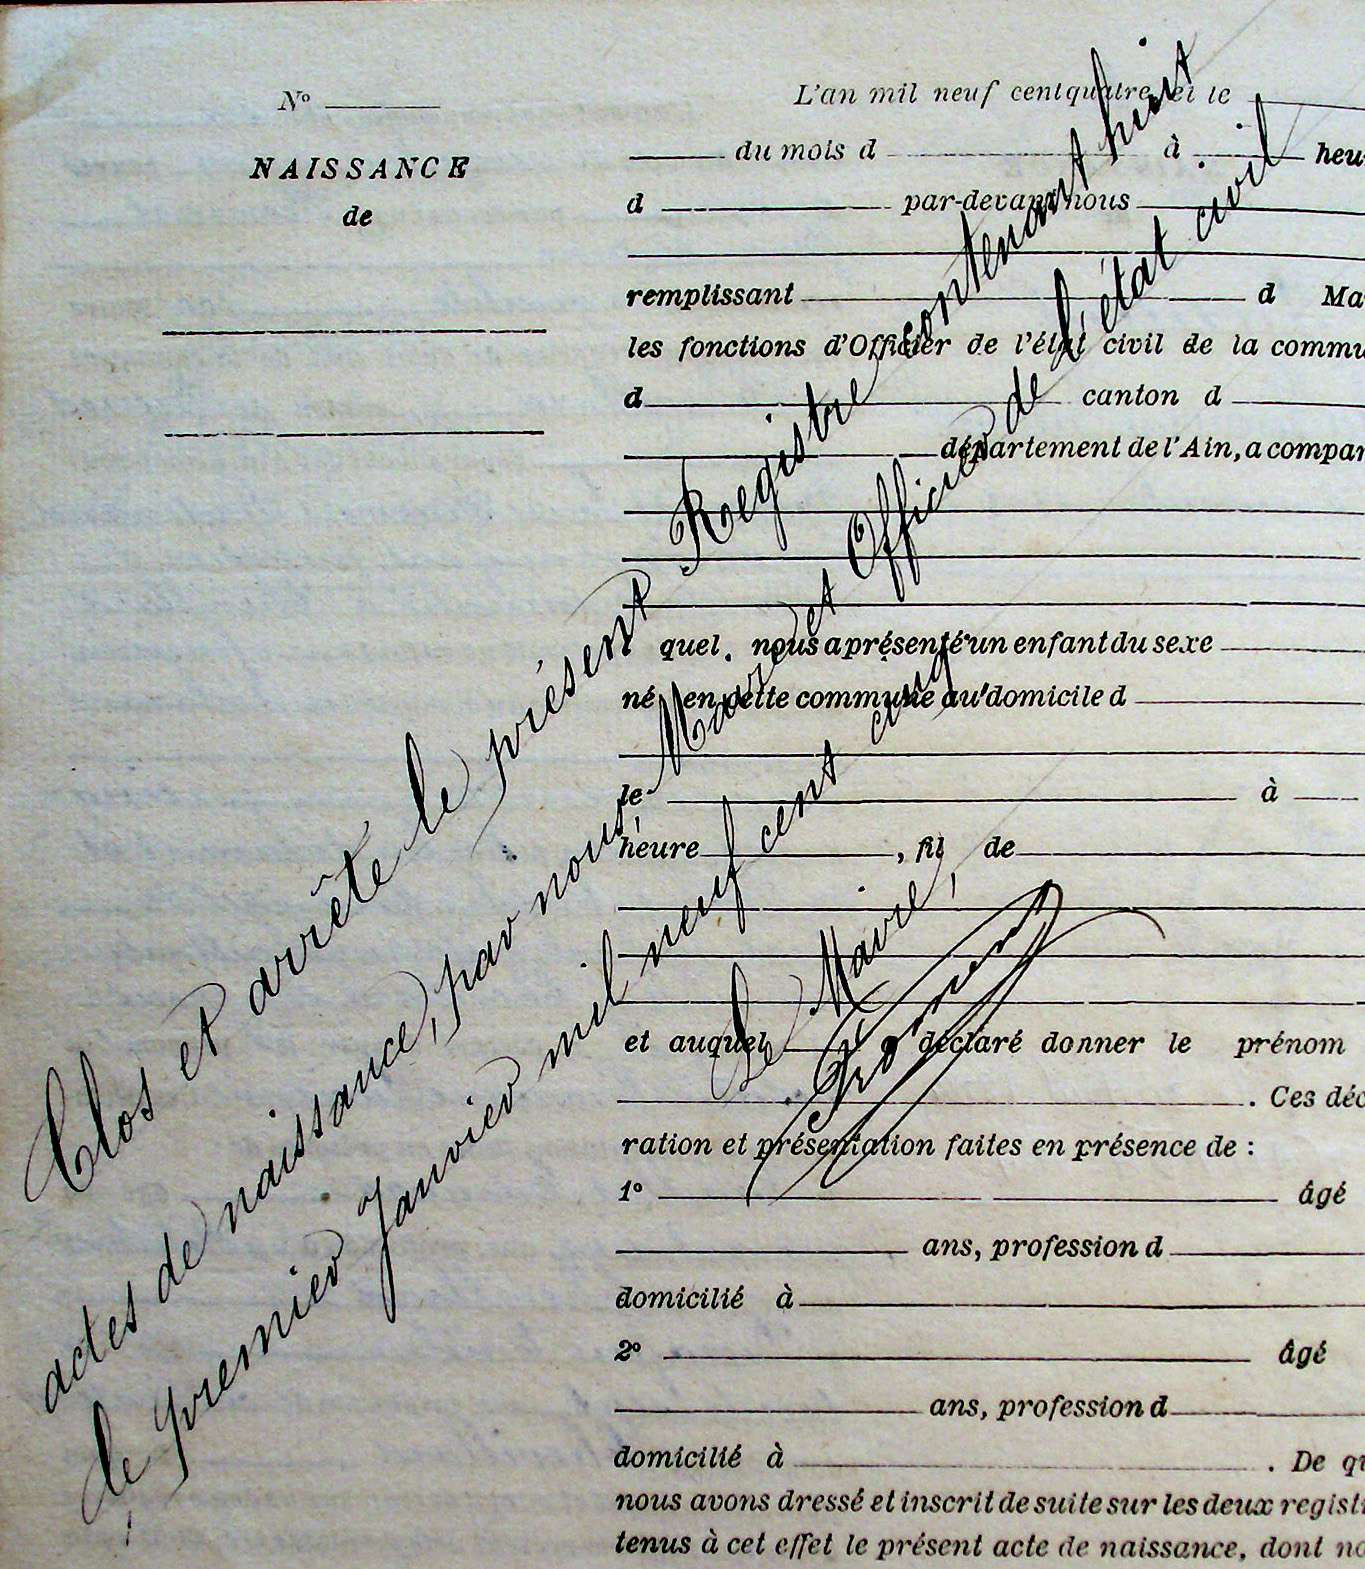 N°
NAISSANCE
de
L'an mil neuf cent quatre et le
du mois d à heu
d par-devant nous
remplissant d Ma
les fonctions d'Officier de l'état civil de la commu
d canton d
département de l'Ain, a compar
quel. nous a présenté un enfant du sexe
né en cette commune au domicile d
le à
heure , fil de
et auquel a déclaré donner le prénom
. Ces déc
ration et présentation faites en présence de :
1° âgé
ans, profession d
domicilié à
2° âgé
ans, profession d
domicilié à . De qu
nous avons dressé et inscrit de suite sur les deux regist
tenus à cet effet le présent acte de naissance, dont no
Clos et arrête le présent Registre contenant huit
actes de naissance, par nous Maire et Officier de l'état civil
le premier Janvier mil neuf cent cinq
Le Maire,